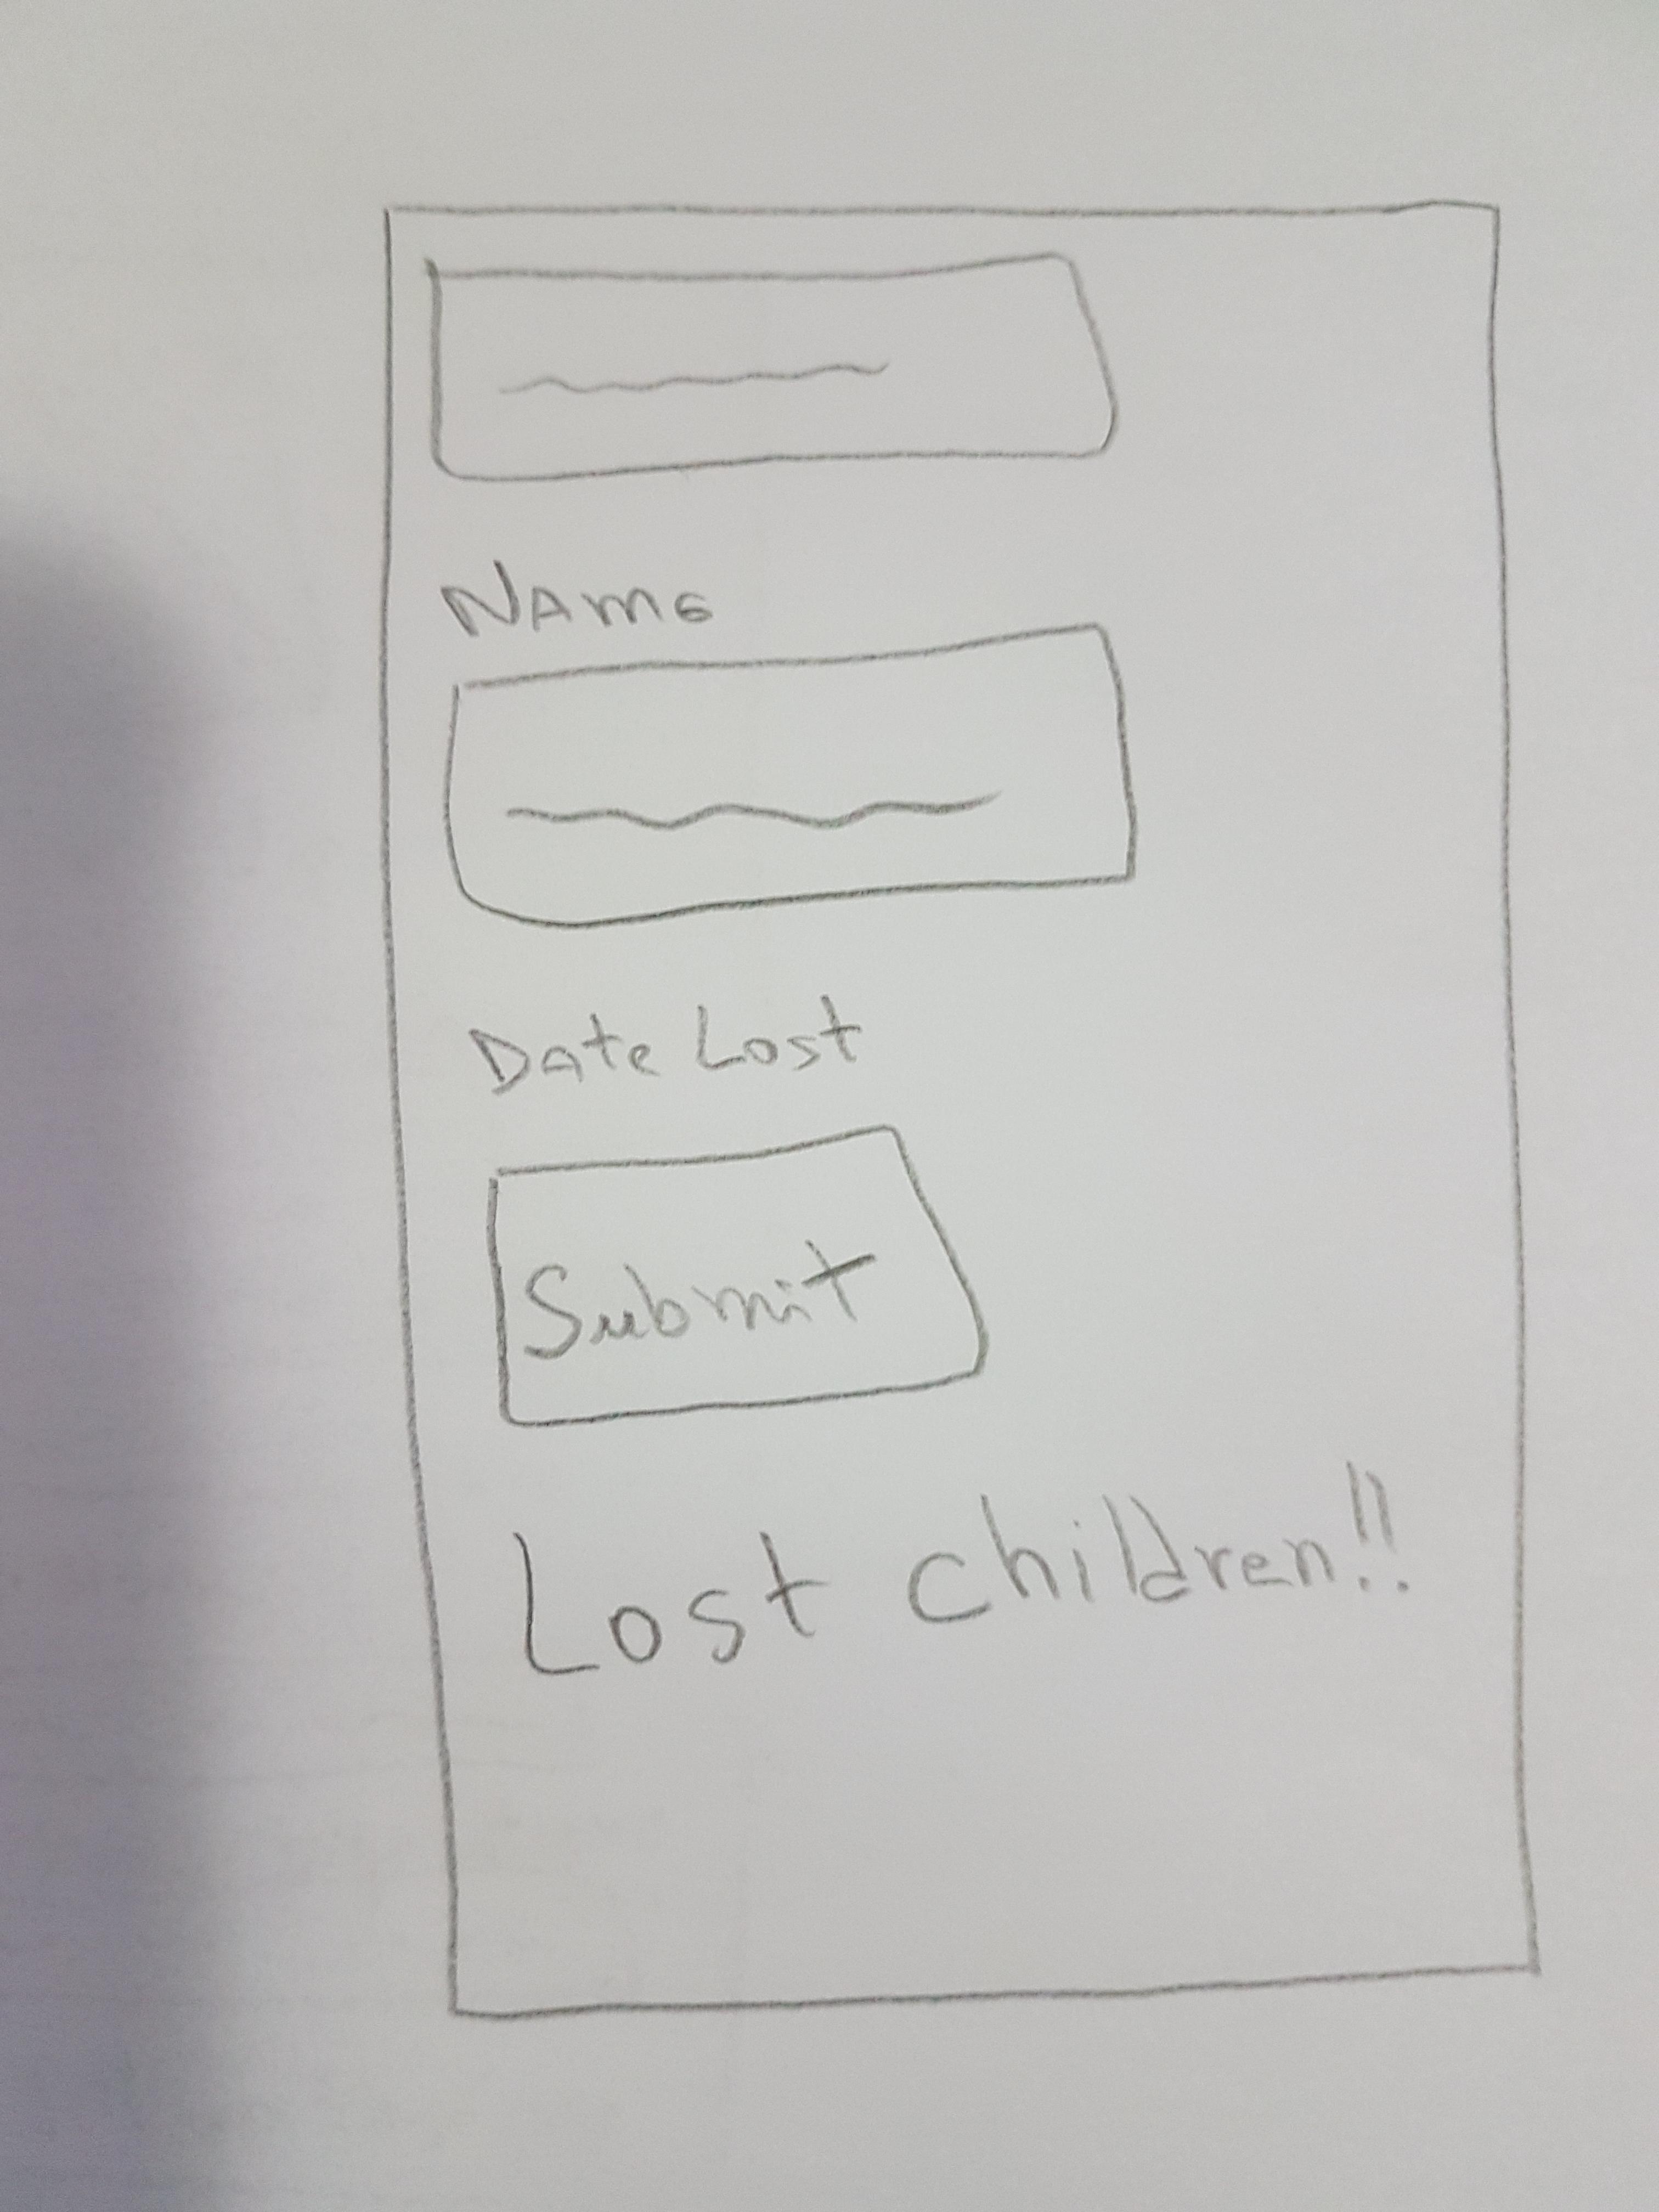 Name
Date Lost
Submit
Lost children!!